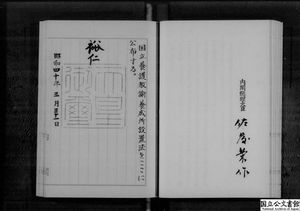 国立養護教諭養成所設置法をここに
公布する。
裕仁
天皇御璽
昭和四十年三月三十一日
内閣総理大臣
佐藤榮作
国立公文書館
National Archives of Japan